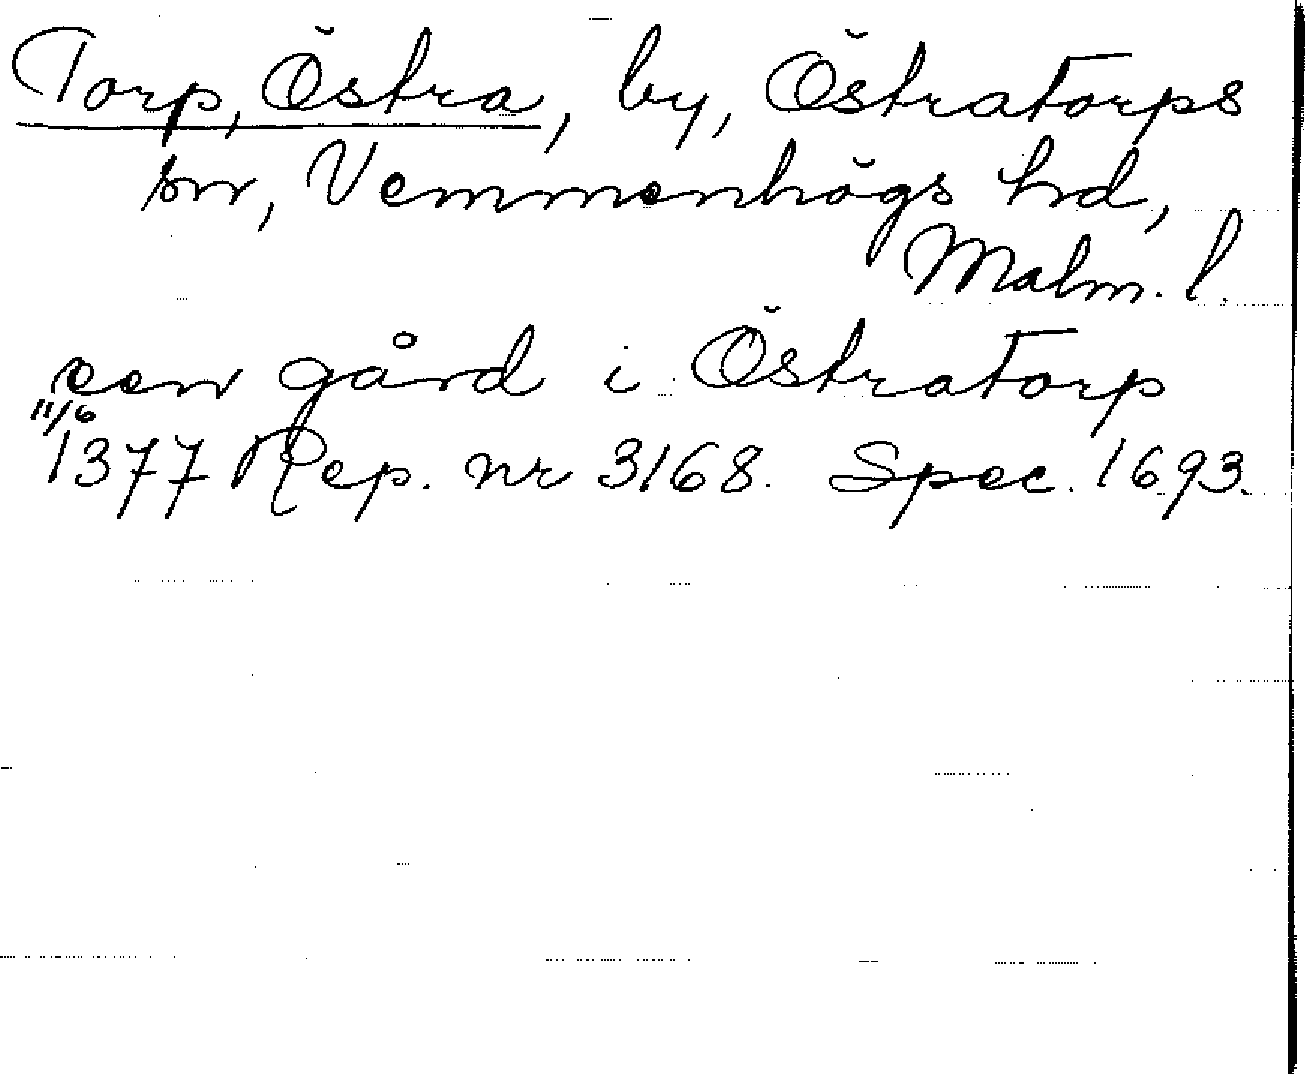 Torp, Östra, by, Östratorps
sn, Vemmenhögs hd,
Malm. l.
een gård i Östratorp
11/6
1377 Rep. nr 3168. Spec. 1693.